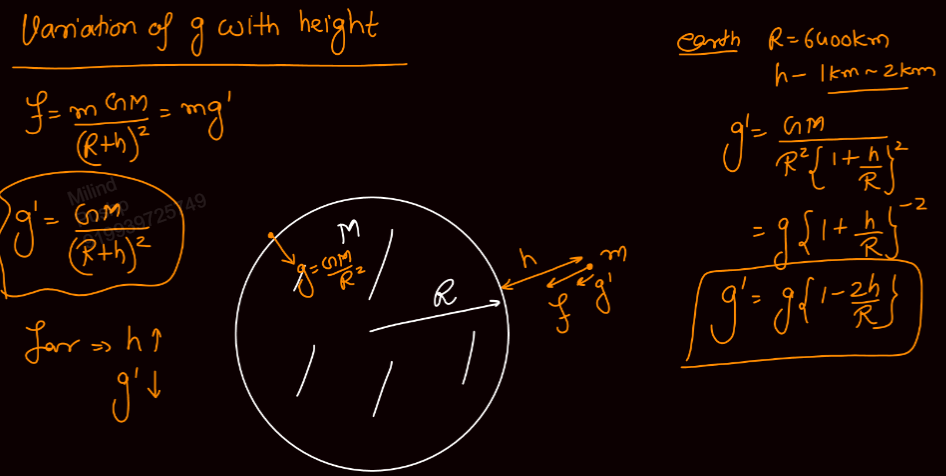 Variation of g with height
f = mGM/(R+h)² = mg'
g' = GM/(R+h)²
far ⇒ h↑
g'↓
M
g = GM/R²
R
h
m
f
g'
earth R = 6400km
h - 1km ~ 2km
g' = GM/R²{1 + h/R}²
= g{1 + h/R}⁻²
g' = g{1 - 2h/R}
Milind